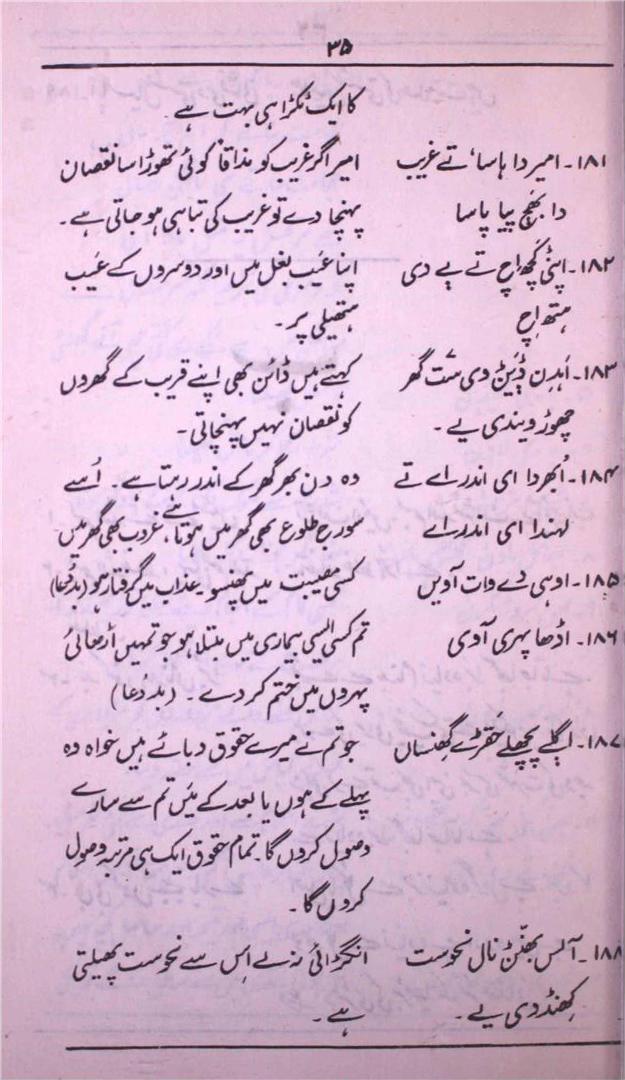 ۳۵
کا ایک ٹکڑا ہی بہت ہے
۱۸۱۔ امیر دا ہاسا، تے غریب امیر اگر غریب کو مذاقاً کوئی تھوڑا سا نقصان
دا بھج پیا پاسا پہنچا دے تو غریب کی تباہی ہو جاتی ہے۔
۱۸۲۔ اپنی کچھ اچ تے بے دی اپنا عیب بغل میں اور دوسروں کے عیب
ہتھ اچ ہتھیلی پر۔
۱۸۳۔ اُہدن ڈین دی ست گھر کہتے ہیں ڈائن بھی اپنے قریب کے گھروں
چھوڑ ویندی یے۔ کو نقصان نہیں پہنچاتی۔
۱۸۴۔ اُبھردا ای اندر اے تے وہ دن بھر گھر کے اندر رہتا ہے۔ اُسے
لہندا ای اندر اے سورج طلوع بھی گھر میں ہوتا ہے، غروب بھی گھر میں
۱۸۵۔ اوہی دے وات آویں کسی مصیبت میں پھنسو۔ عذاب میں گرفتار ہو (بددعا)
۱۸۶۔ اڈھا پہری آوی تم کسی ایسی بیماری میں مبتلا ہو جو تمہیں اڑھائی
پہروں میں ختم کر دے۔ (بددُعا)
۱۸۷۔ اگلے پچھلے حقڑے گھنساں جو تم نے میرے حقوق دبائے ہیں خواہ وہ
پہلے کے ہوں یا بعد کے میں تم سے سارے
وصول کروں گا۔ تمام حقوق ایک ہی مرتبہ وصول
کروں گا۔
۱۸۸۔ آلس بھنّن نال نحوست انگڑائی نہ لے اس سے نحوست پھیلتی
کھنڈدی یے۔ ہے۔